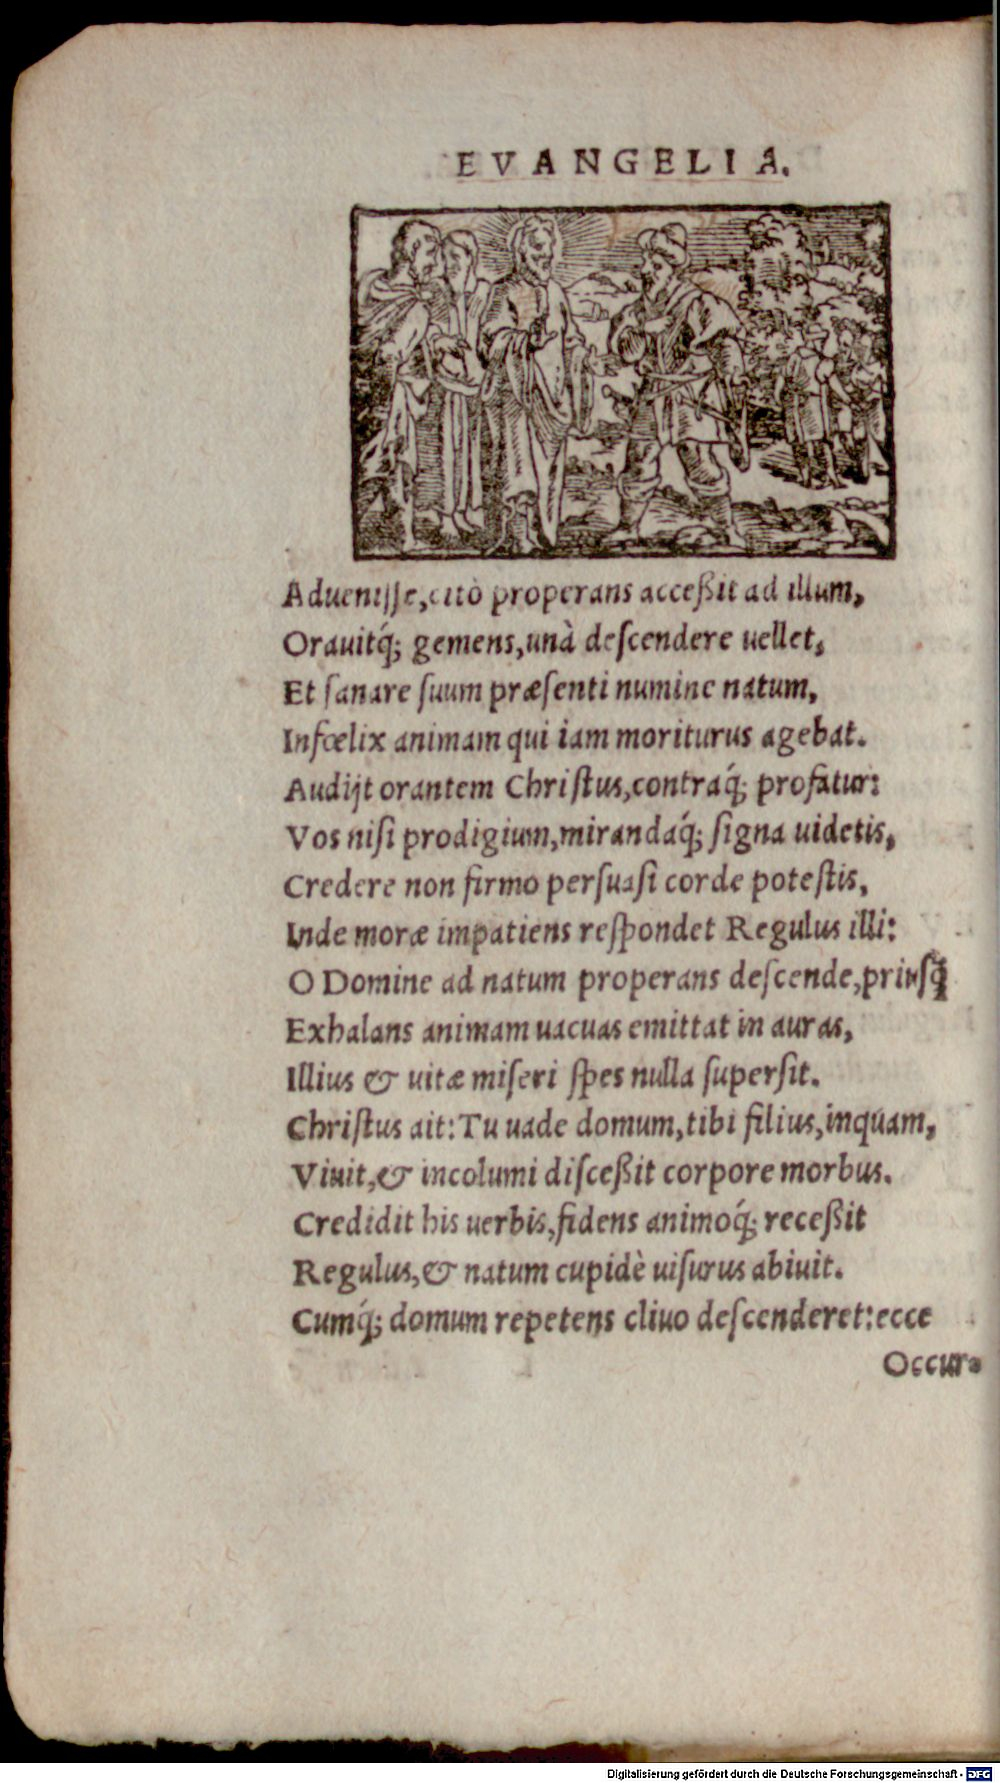 EVANGELIA.
Aduenisse, citò properans acceßit ad illum,
Orauitq́; gemens, unà descendere uellet,
Et sanare suum præsenti numine natum,
Infœlix animam qui iam moriturus agebat.
Audijt orantem Christus, contraq́; profatur:
Vos nisi prodigium, mirandaq́; signa uidetis,
Credere non firmo persuasi corde potestis,
Inde moræ impatiens respondet Regulus illi:
O Domine ad natum properans descende, priusq̃
Exhalans animam uacuas emittat in auras,
Illius & uitæ miseri spes nulla supersit.
Christus ait: Tu uade domum, tibi filius, inquam,
Viuit, & incolumi disceßit corpore morbus.
Credidit his uerbis, fidens animoq́; receßit
Regulus, & natum cupidè uisurus abiuit.
Cumq́; domum repetens cliuo descenderet: ecce
Occur-
Digitalisierung gefördert durch die Deutsche Forschungsgemeinschaft - DFG